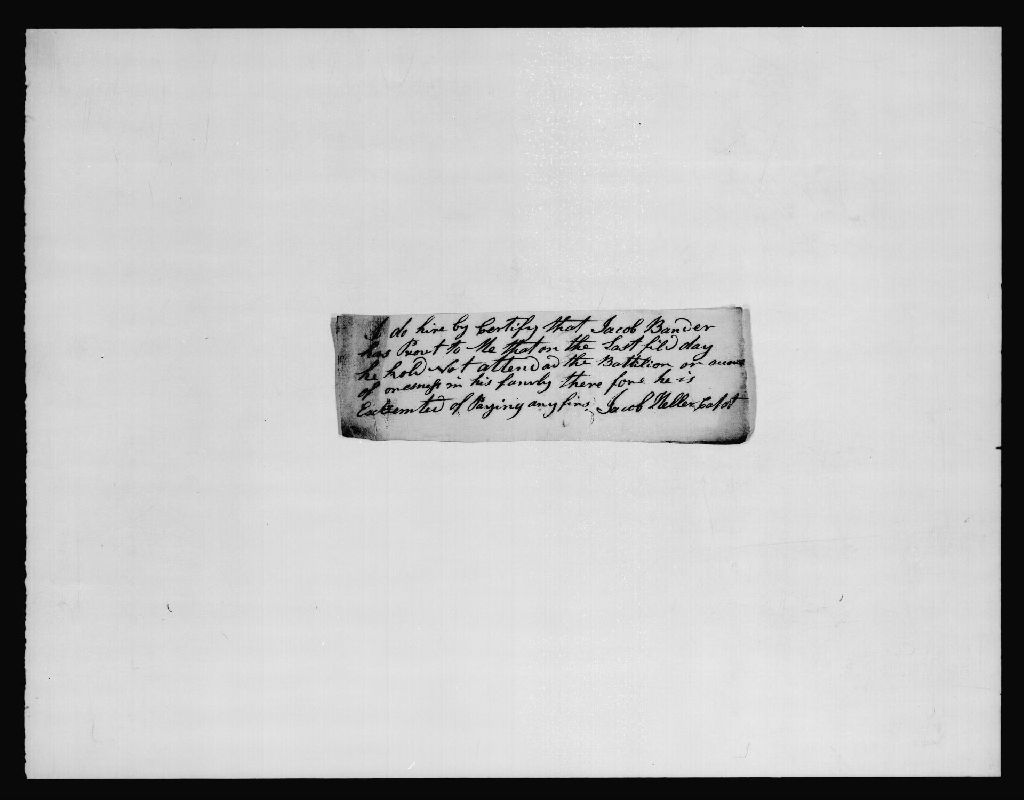 I do hire by Certify that Jacob Bander
has Provt to Me that on the Last fild day
he kold Not attend ad the Batélion on
of in his famly there fore he is
Exemted of Paying any fins Jacob Heller